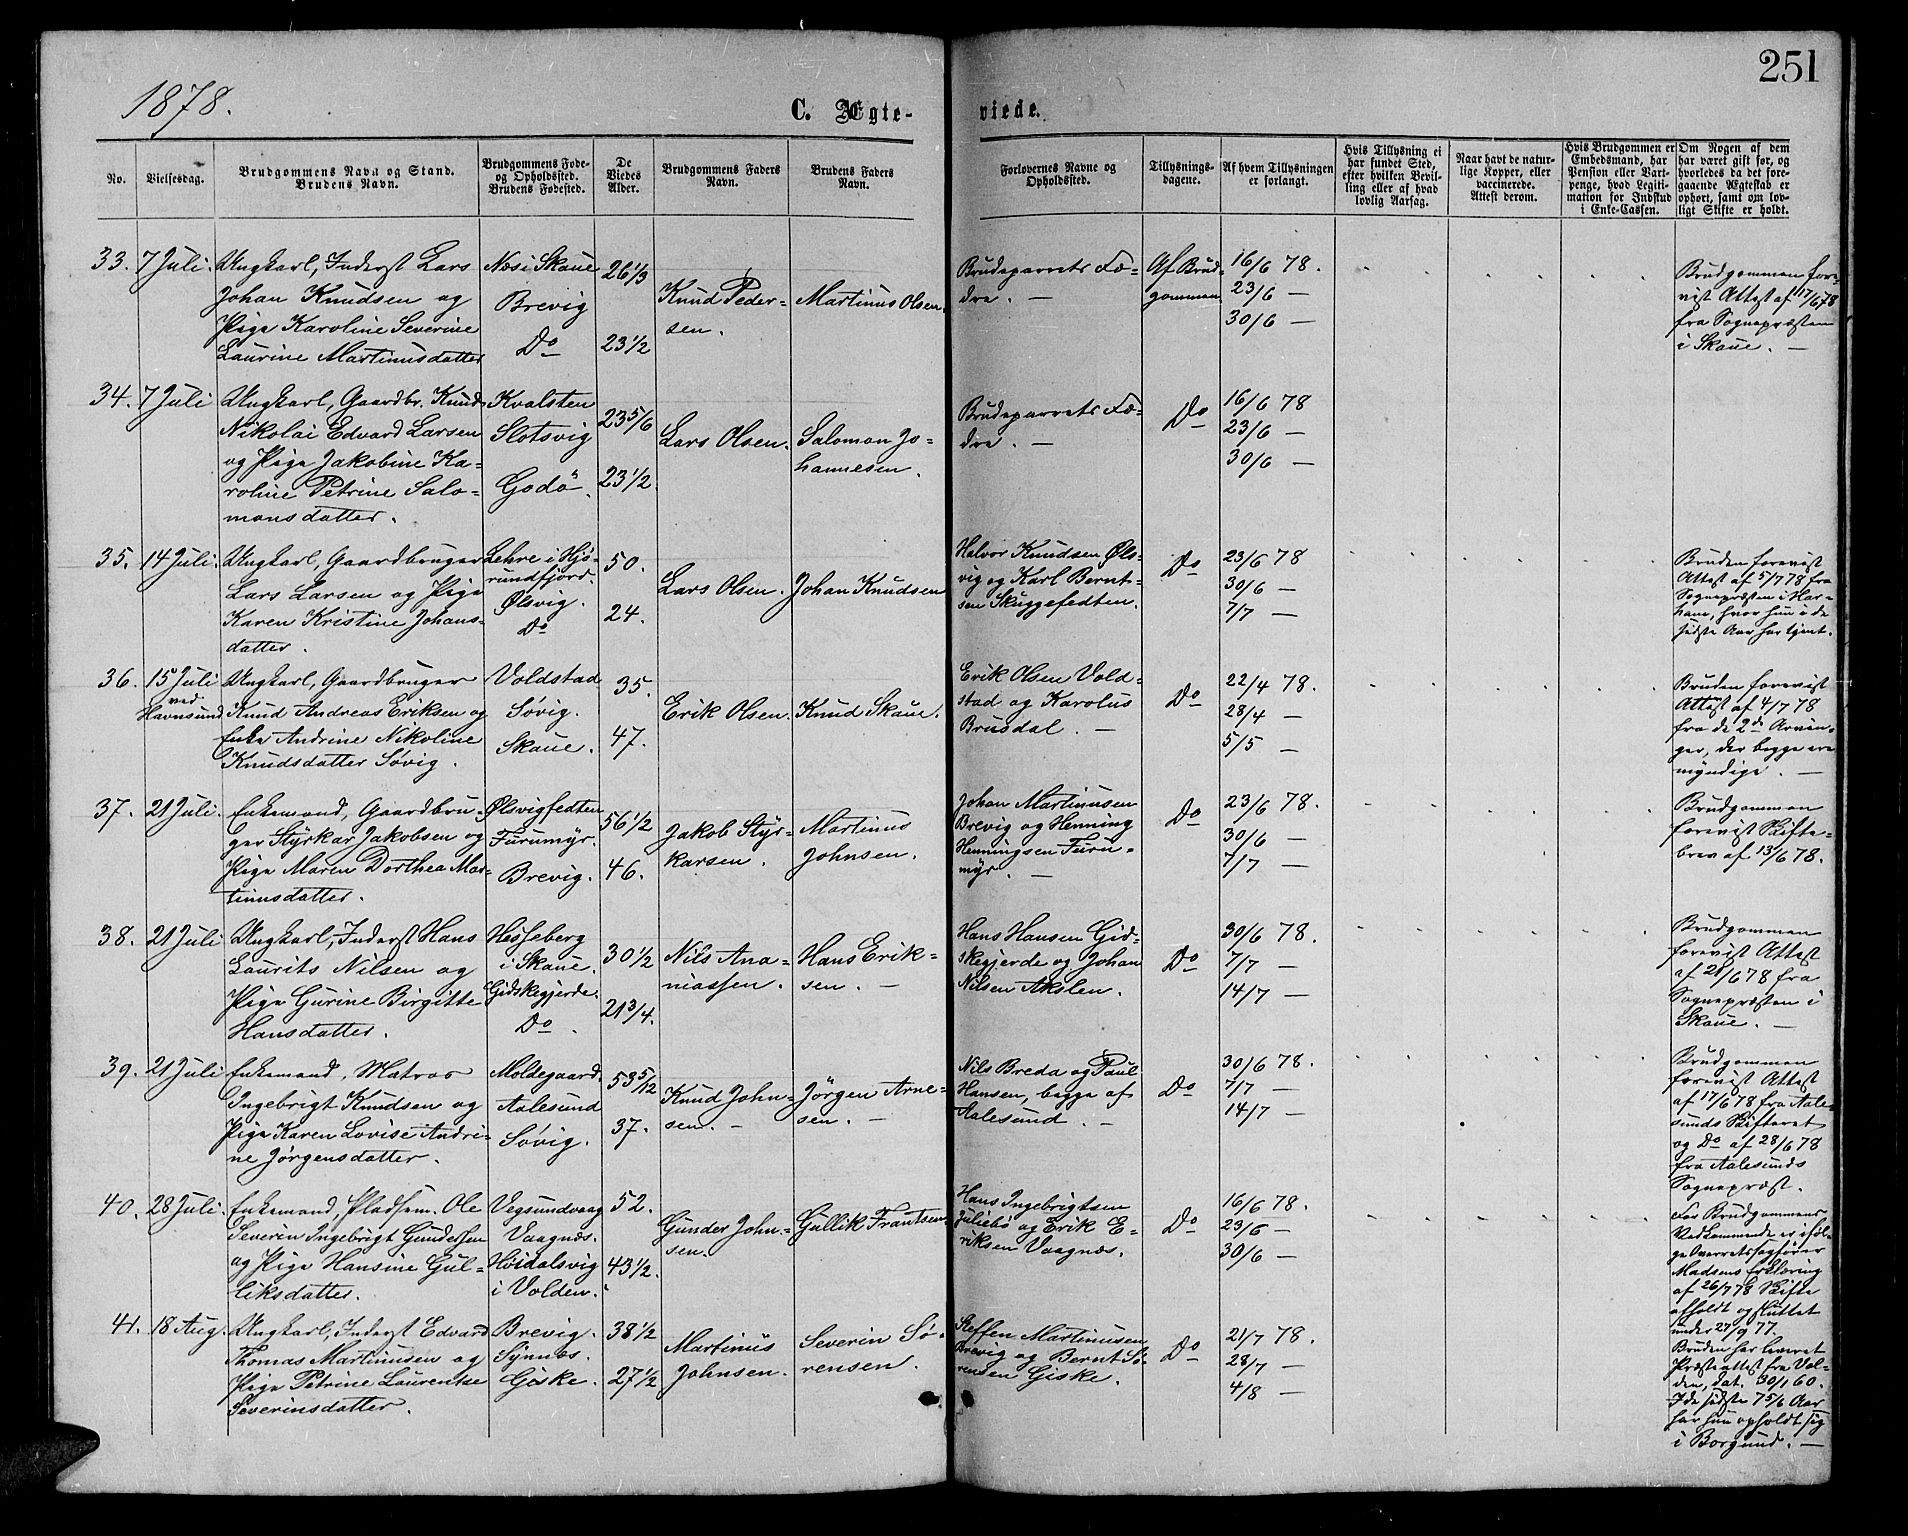 251
1878.
C. Ægte-
viede.
No.
Vielsesdag.
Brudgommens Navn og Stand.
Brudens Navn.
Brudgommens Føde-
og Opholdssted.
Brudens Fødested.
De
Viedes
Alder.
Brudgommens Faders
Navn.
Brudens Faders
Navn.
Forlovernes Navne og
Opholdssted.
Tillysnings-
dagene.
Af hvem Tillysningen
er forlangt.
Hvis Tillysning ei
har fundet Sted,
efter hvilken Bevil-
ling eller af hvad
lovlig Aarsag.
Naar havt de natur-
lige Kopper, eller
vaccinerede.
Attest derom.
Hvis Brudgommen er
Embedsmand, har
Pension eller Vart-
penge, hvad Legiti-
mation for Indskud
i Enke-Cassen.
Om Nogen af dem
har været gift før, og
hvorledes da det fore-
gaaende Ægteskab er
ophørt, samt om lov-
ligt Skifte er holdt.
33. 7 Juli.
Ungkarl, Inderst Lars
Johan Knudsen og
Pige Karoline Severine
Laurine Martinusdatter
Næs i Skaue
Brevig
Do
26 1/3
23 1/2
Knud Peder-
sen.
Martinus Olsen.
Brudeparrets Fæ-
dre. —
Af Brud-
gommen
16/6 78.
23/6 —
30/6 —
Brudgommen fore-
vist Attest af 17/6 78
fra Sognepræsten
i Skaue. —
34. 7 Juli
Ungkarl, Gaardbr. Knud
Nikolai Edvard Larsen
og Pige Jakobine Ka-
roline Petrine Salo-
monsdatter.
Kvalsten
Slotsvig
Godö.
23 5/6
23 1/2.
Lars Olsen.
Salomon Jo-
hannesen.
Brudeparrets Fæ-
dre. —
Do
16/6 78
23/6 —
30/6 —
35. 14 Juli.
Ungkarl, Gaardbruger
Lars Larsen og Pige
Karen Kristine Johans-
datter.
Lehre i Hjø-
rundfjord.
Ølsvig.
Do
50.
24.
Lars Olsen.
Johan Knudsen
Halvor Knudsen Øls-
vig og Karl Bernt-
sen Skuggefedten.
Do
23/6 78
30/6 —
7/7 —
Bruden forevist
Attest af 5/7 78 fra
Sognepræsten i Har-
ham, hvor hun i de
sidste Aar har tjent.
36. 15 Juli
ved
Havnsund
Ungkarl, Gaardbruger
Knud Andreas Eriksen og
Enke Andrine Nikoline
Knudsdatter Søvig.
Voldstad
Søvig.
Skaue.
35.
47.
Erik Olsen.
Knud Skaue.
Erik Olsen Vold-
stad og Karolus
Brusdal. —
Do
22/4 78.
28/4 —
5/5 —
Bruden forevist
Attest af 4/7 78
fra de 2de Arvin-
ger, der begge ere
myndige. —
37. 21 Juli.
Enkemand, Gaardbru-
ger Styrkar Jakobsen og
Pige Maren Dorthea Mar-
tinusdatter.
Ølsvigfedten
Furumyr.
Brevig.
56 1/2
46.
Jakob Styr-
karsen.
Martinus
Johnsen.
Johan Martinusen
Brevig og Henning
Henningsen Furu-
myr. —
Do
23/6 78.
30/6 —
7/7 —
Brudgommen
forevist Skifte-
brev af 13/6 78.
38. 21 Juli
Ungkarl, Inderst Hans
Laurits Nilsen og
Pige Gurine Birgitte
Hansdatter.
Hesseberg
i Skaue.
Gidskegjerde.
Do.
30 1/2
21 3/4.
Nils Ana-
niassen.
Hans Erik-
sen. —
Hans Hansen Gid-
skegjerde og Johan
Nilsen Akslen.
Do
30/6 78.
7/7 —
14/7 —
Brudgommen
forevist Attest
af 28/6 78 fra
Sognepræsten i
Skaue. —
39. 21 Juli
Enkemand, Matros
Ingebrigt Knudsen og
Pige Karen Lovise Andri-
ne Jørgensdatter.
Moldegaard.
Aalesund
Søvig.
53 5/12
37.
Knud John-
sen. —
Jörgen Arne-
sen. —
Nils Breda og Paul
Hansen, begge af
Aalesund. —
Do
30/6 78.
7/7 —
14/7 —
Brudgommen
forevist Attest
af 17/6 78 fra Aale-
sunds Skifteret
og Do af 28/6 78
fra Aalesunds
Sognepræst.
40. 28 Juli.
Enkemand, Pladsem. Ole
Severin Ingebrigt Gundersen
og Pige Hansine Gul-
liksdatter.
Vegsundvaag
Vaagnæs.
Høidalsvig
i Volden.
52.
43 1/2.
Gunder John-
sen.
Gullik Frantsen.
Hans Ingebrigtsen
Juliebö og Erik E-
riksen Vaagnæs.
Do
16/6 78.
23/6 —
30/6 —
For Brudgommens
Vedkommende er iføl-
ge Overretssagfører
Madsens Erklæring
af 26/7 78 Skifte
afholdt og sluttet
under 27/9 77.
Bruden har leveret
Præsteattest fra Vol-
den, dat. 30/1 60.
I de sidste 7 5/6 Aar
har hun opholdt sig
i Borgund. —
41. 18 Aug.
Ungkarl, Inderst Edvard
Thomas Martinusen og
Pige Petrine Laurentse
Severinsdatter.
Brevig.
Synnes.
Giske.
38 1/2
27 1/2
Martinus
Johnsen.
Severin Sø-
rensen.
Steffen Martinusen
Brevig og Bernt Sø-
rensen Giske.
Do
21/7 78.
28/7 —
4/8 —